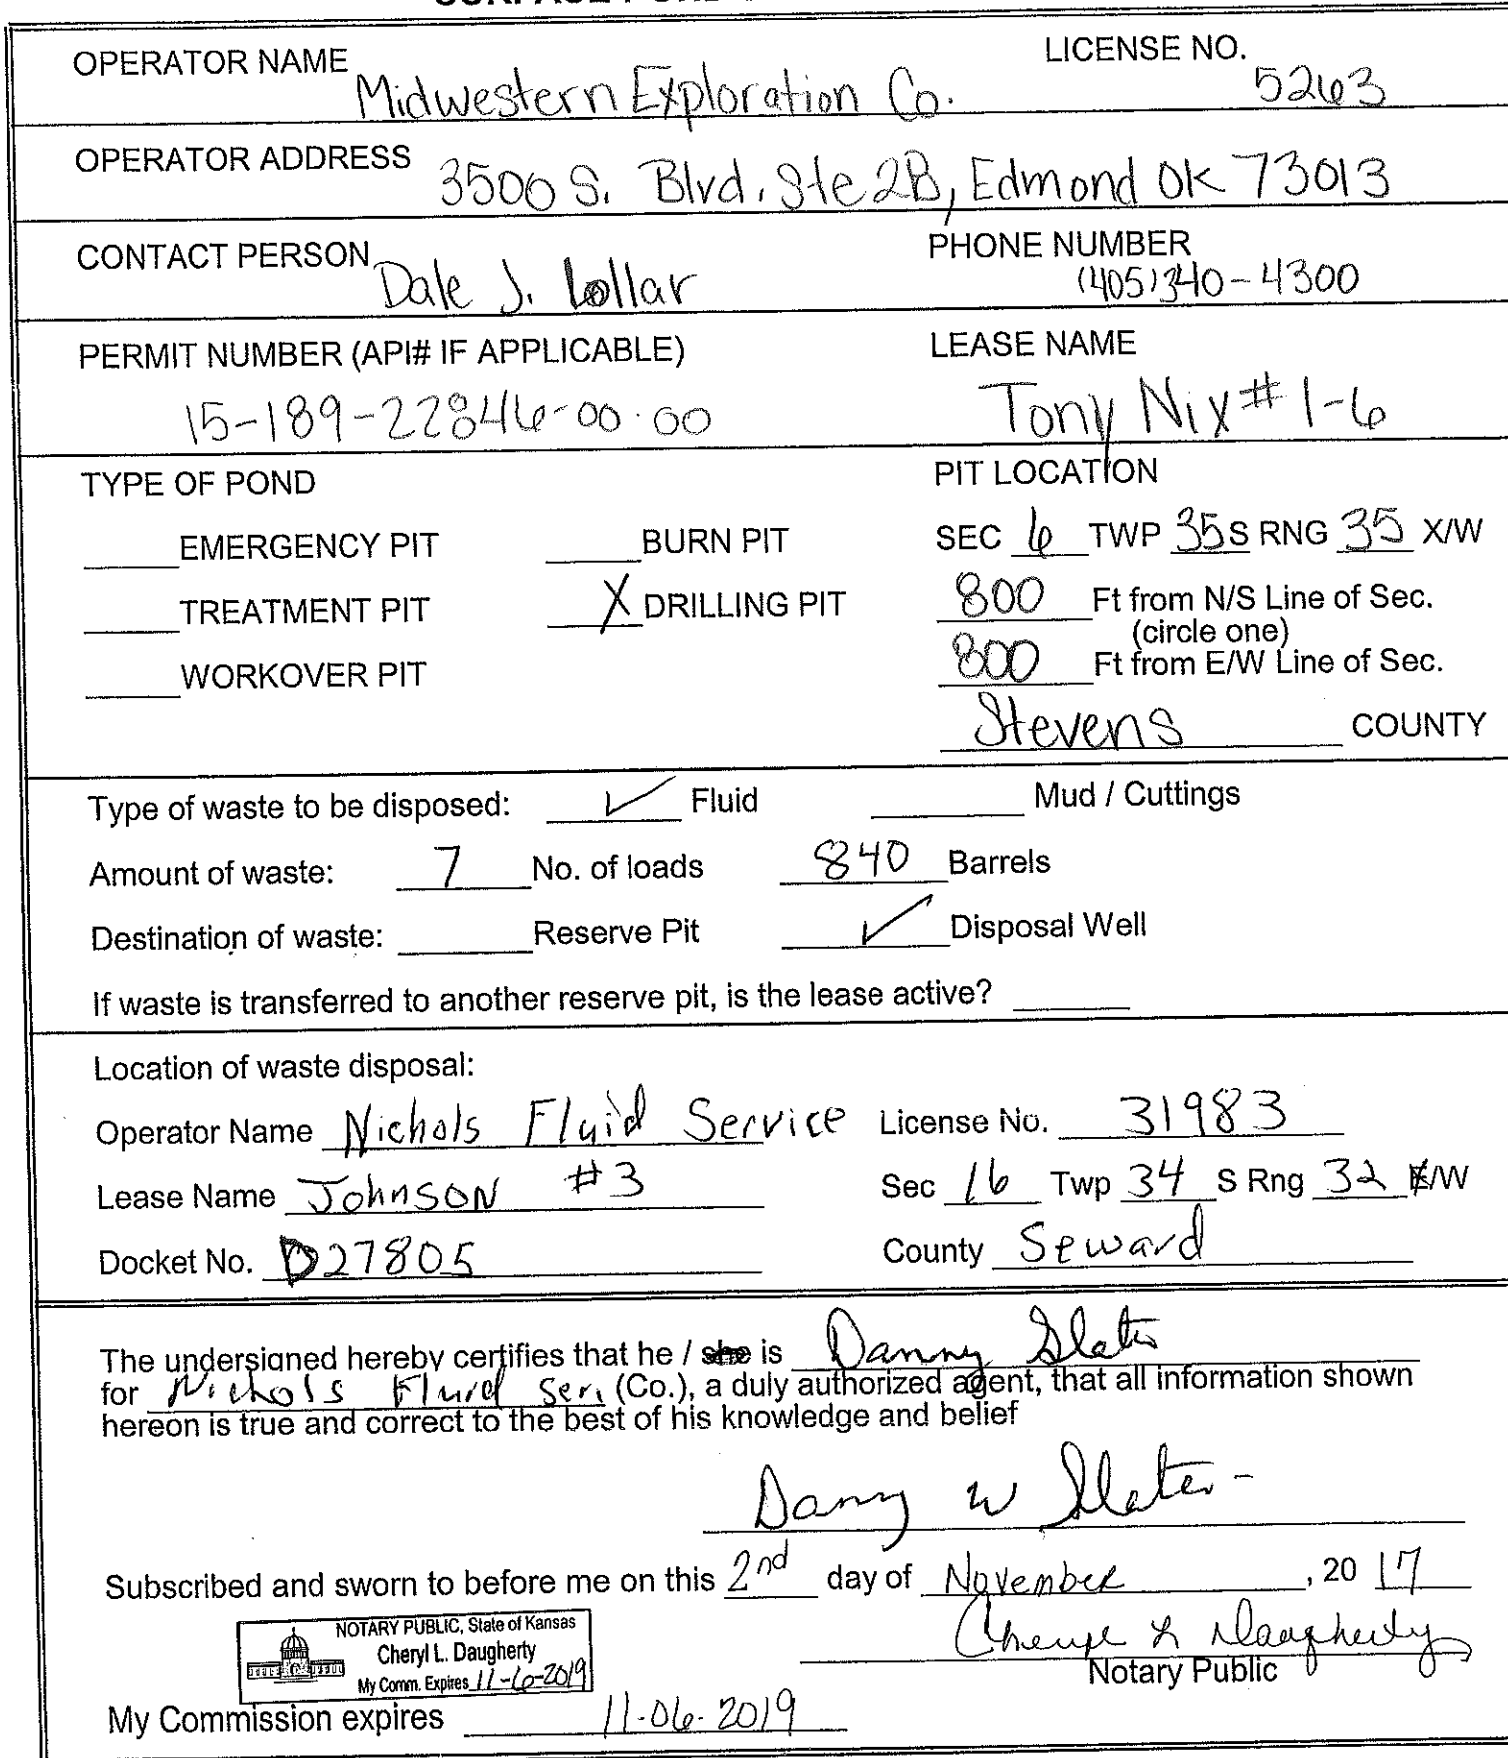 OPERATOR NAME Midwestern Exploration Co. LICENSE NO. 5263
OPERATOR ADDRESS 3500 S. Blvd. Ste 2B, Edmond OK 73013
CONTACT PERSON Dale J. Lollar PHONE NUMBER (405)340-4300
PERMIT NUMBER (API# IF APPLICABLE) LEASE NAME
15-189-22846-00-00 Tony Nix #1-6
TYPE OF POND PIT LOCATION
EMERGENCY PIT BURN PIT SEC 6 TWP 35S RNG 35 X/W
TREATMENT PIT X DRILLING PIT 800 Ft from N/S Line of Sec.
(circle one)
WORKOVER PIT 800 Ft from E/W Line of Sec.
Stevens COUNTY
Type of waste to be disposed: ✓ Fluid Mud / Cuttings
Amount of waste: 7 No. of loads 840 Barrels
Destination of waste: Reserve Pit ✓ Disposal Well
If waste is transferred to another reserve pit, is the lease active?
Location of waste disposal:
Operator Name Nichols Fluid Service License No. 31983
Lease Name Johnson #3 Sec 16 Twp 34 S Rng 32 E/W
Docket No. D27805 County Seward
The undersigned hereby certifies that he / she is Danny Slater
for Nichols Fluid Ser. (Co.), a duly authorized agent, that all information shown
hereon is true and correct to the best of his knowledge and belief
Danny W Slater
Subscribed and sworn to before me on this 2nd day of November, 20 17
NOTARY PUBLIC, State of Kansas
Cheryl L. Daugherty
My Comm. Expires 11-6-2019
Cheryl L Daugherty
Notary Public
My Commission expires 11-06-2019